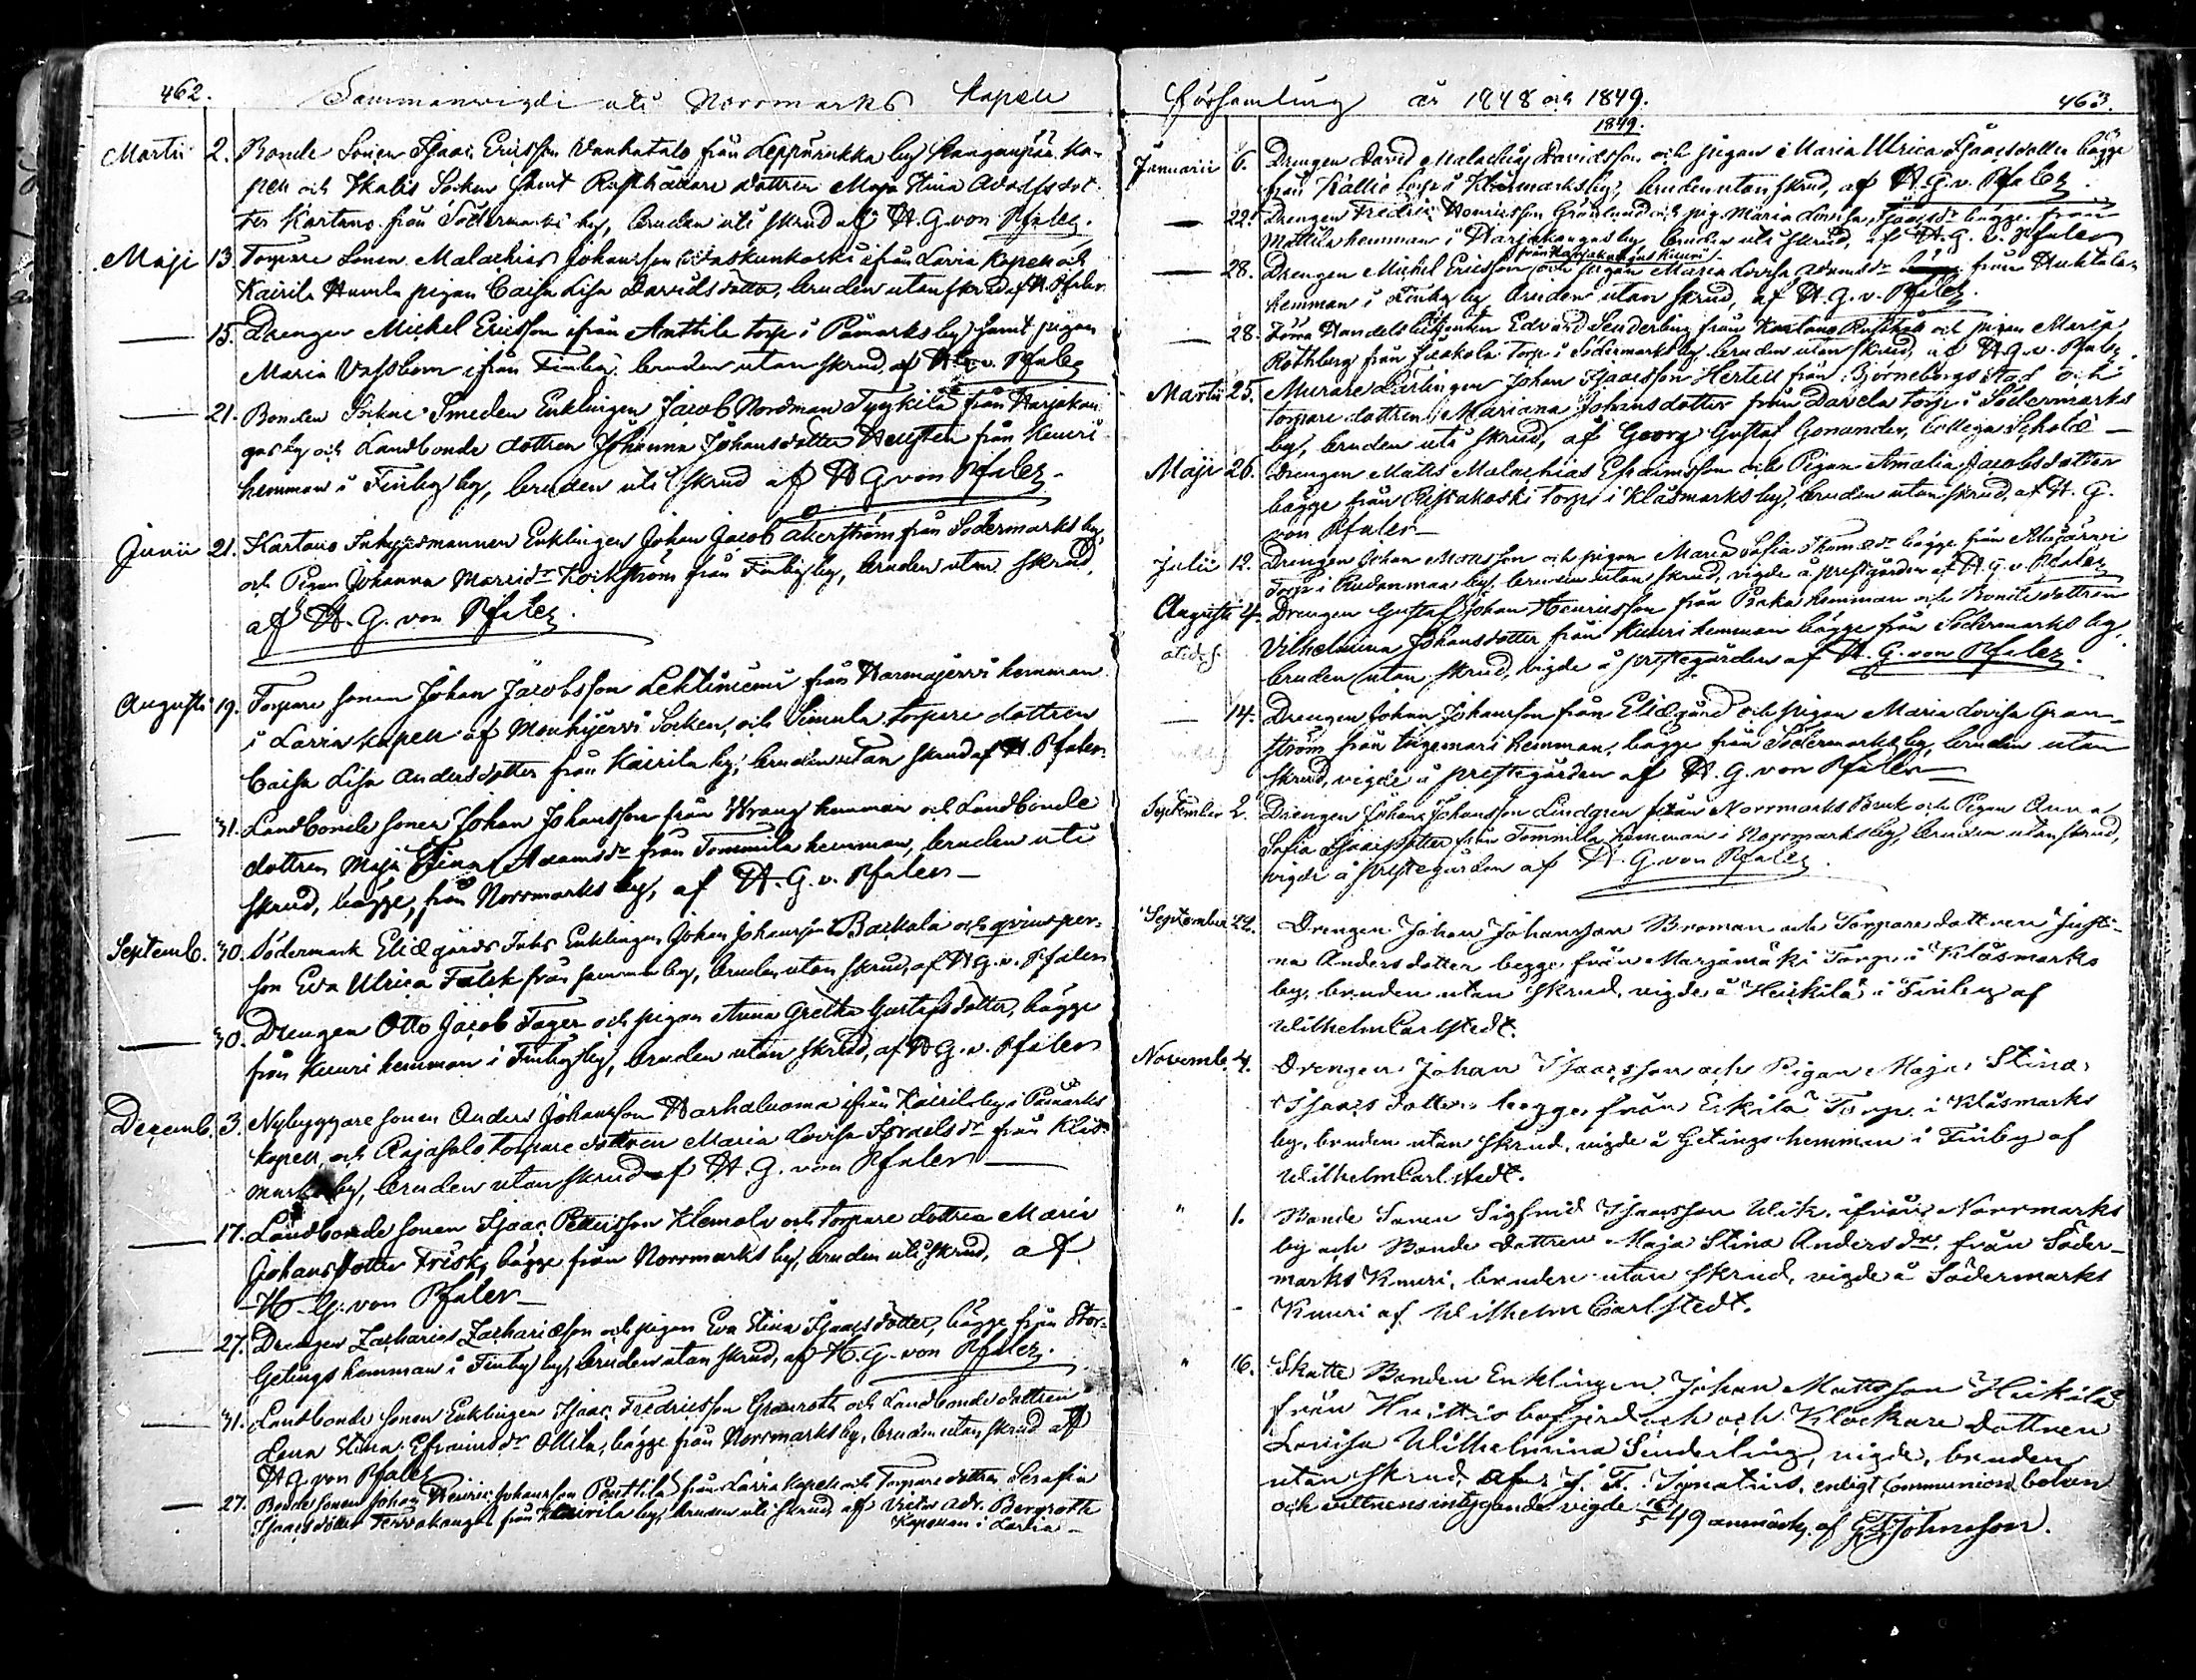 462.
Sammanvigde uti Norrmarks Kapell
Martii 2. Bonde Sonen Isaac Ericsson Vanhatalo från Leppäruhka by Kangaspää Ka-
pell och Ikalis Socken samt Rusthållare dottren Maja Stina Adolfsdot-
ter Kartano från Södermarks by, bruden uti skrud af H. G. von Pfaler.
Maji 13. Torpare Sonen Malachias Johansson ifrån Lavia Kapell och
Kairila Humla pigan Caisa Lisa Davidsdotter, bruden utan skrud af H. Pfaler
— 15. Drengen Michel Ericsson ifrån Anttila torp i Påmarks by samt pigan
Maria ifrån Finby bruden utan skrud, af H. G. v. Pfaler
— 21. Bonden Sockne Smeden Enklingen Jacob Nordman Tyyskilä från Harjakan-
gas by och Landbonde dottren Johanna Johansdotter Heusten från Knuri
hemman i Finby by, bruden uti skrud af H G von Pfaler
Junii 21. Kartano Inhysesmannen Enklingen Johan Jacob Åkerström från Södermarks by,
och Pigan Johanna från Finby by, bruden utan skrud,
af H. G. von Pfaler.
Augusti 19. Torpare sonen Johan Jacobsson Lektiniemi från Harmajervi hemman
i Lavia Kapell af Mouhijervi Socken, och Simula torpare dottren
Caisa Lisa Andersdotter från Kairila by, bruden utan skrud af H. Pfaler
— 31. Landbonde sonen Johan Johansson från Wrang hemman och Landbonde
dottren Maja Stina Adamsdr från Tommila hemman, bruden uti
skrud, bägge från Norrmarks by, af H. G. v. Pfaler —
Septemb. 30. Södermark Eliægårds Inhs Enklingen Johan Johansson Backala och qvinsper-
son Eva Ulrica Falck från samma by, bruden utan skrud, af H. G. v. Pfaler
— 30. Drengen Otto Jacob Fager och pigan Anna Gretha Gustafsdotter, bägge
från Knuri hemman i Finby by, bruden utan skrud, af H. G. v. Pfaler
Decemb. 3. Nybyggare sonen Anders Johansson Harhaluoma ifrån Kairila by i Påmarks
kapell, och Rajasalo torpare dottren Maria Lovisa Israelsdr från Klås-
marks by, bruden utan skrud af H. G. von Pfaler —
— 17. Landbonde sonen Isaac Pettersson Klemola och torpare dottren Maria
Johansdotter Frisk, bägge från Norrmarks by, bruden uti skrud, af
H. G. von Pfaler —
— 27. Drengen Zacharias Zachariæson och pigan Eva Stina Isaacsdotter, bägge från Stor-
Getings hemman i Finby by, bruden utan skrud, af H. G. von Pfaler.
— 31. Landbonde sonen Enklingen Isaac Fredricsson Granroth och Landbonde dottren
Lena Stina Efraimsdr Ollila, bägge från Norrmarks by, bruden utan skrud af
H G von Pfaler
— 27. Bonde sonen Johan Henric Johansson Penttilä från Lavia Kapell och Torpare dottren Serafia
Isaacsdotter Tervakangas från Kairila by, bruden uti skrud af Victor Adr. Bergroth
Kapellan i Lavia —
Församling år 1848 och 1849.
463.
1849.
Januarii 6. Drengen David Malachias Davidsson och pigan Maria Ulrica Isaacsdotter bägge
från Kallio torp i Klåsmarks by, bruden utan skrud, af H. G. v. Pfaler.
— 22. Drengen Fredric Henricsson Grönlund och pig. Maria Lovisa Isaacsdr bägge från
Mattila hemman i Harjakangas by, bruden uti skrud, af H. G. v. Pfaler
från Harjakangas Knuri
— 28. Drengen Michel Ericsson och pigan Maria Lovisa Adamsdr från Huhtala
hemman i Finby by, bruden utan skrud, af H. G. v. Pfaler.
— 28. Förra Handelsbetjenten Edvard Senderling från Kartano Rusthåll och pigan Maria
Rothberg från Jaakola Torp i Södermarks by, bruden utan skrud, af H. G. v. Pfaler.
Martii 25. Murare Lärlingen Johan Isaacsson Hertell från Björneborgs Stad och
torpare dottren Mariana Johansdotter från Davela torp i Södermarks
by, bruden uti skrud, af Georg Gustaf Gonander, Collega Scholæ —
Maji 26. Drengen Matts Malachias Efraimsson och Pigan Amalia Jacobsdotter
bägge från Ristakoski torp i Klåsmarks by, bruden utan skrud, af H. G.
von Pfaler —
Julii 12. Drengen Johan Matsson och pigan Maria Sofia Thomædr bägge från Alajärvi
Torp i Rudanmaa by, bruden utan skrud, vigde å prestgården af H. G. v. Pfaler
Augusti 4. Drengen Gustaf Johan Henricsson från Paka hemman och Bonde dottren
Vilhelmina Johansdotter från Knuri hemman bägge från Södermarks by,
bruden utan skrud, vigde å prestegården af H. G. von Pfaler.
— 14. Drengen Johan Johansson från Eliægård och pigan Maria Lovisa Gran-
ström från Ingemari hemman, bägge från Södermarks by, bruden utan
skrud, vigde å prestegården af H. G. von Pfaler —
September 2. Drengen Johan Johansson Lindgren från Norrmarks Bruk och Pigan Anna
Sofia Isaacsdotter från Tommila hemman i Norrmarks by, bruden utan skrud,
vigde å prestegården af H. G. von Pfaler
September 22. Drengen Johan Johansson Broman och Torpare dottren Justi-
na Andersdotter begge från Marjamäki Torp i Klåsmarks
by, bruden utan skrud, vigde å Heikilä i Finby af
Wilhelm Carlstedt.
Novemb. 4. Drengen Johan Isaacsson och Pigan Maja Stina
Isaacs dotter begge från Erkilä Torp i Klåsmarks
by, bruden utan skrud, vigde å Getings hemman i Finby af
Wilhelm Carlstedt.
" 1. Bonde Sonen Sigfrid Isaacsson Wik ifrån Norrmarks
by och Bonde dottren Maja Stina Andersdr från Söder-
marks Knuri, bruden utan skrud, vigde å Södermarks
Knuri af Wilhelm Carlstedt.
" 16. Skatte Bonden Enklingen Johan Mattsson Heikilä
från Huittisbofjerd och Klockare dottren
Lovisa Wilhelmina Sinderling, vigde, bruden
utan skrud af J. F. Ignatius, enligt Communion boken
och vittnens intygande vigde 16/5 49 anmärk. af G. F. Johnsson.